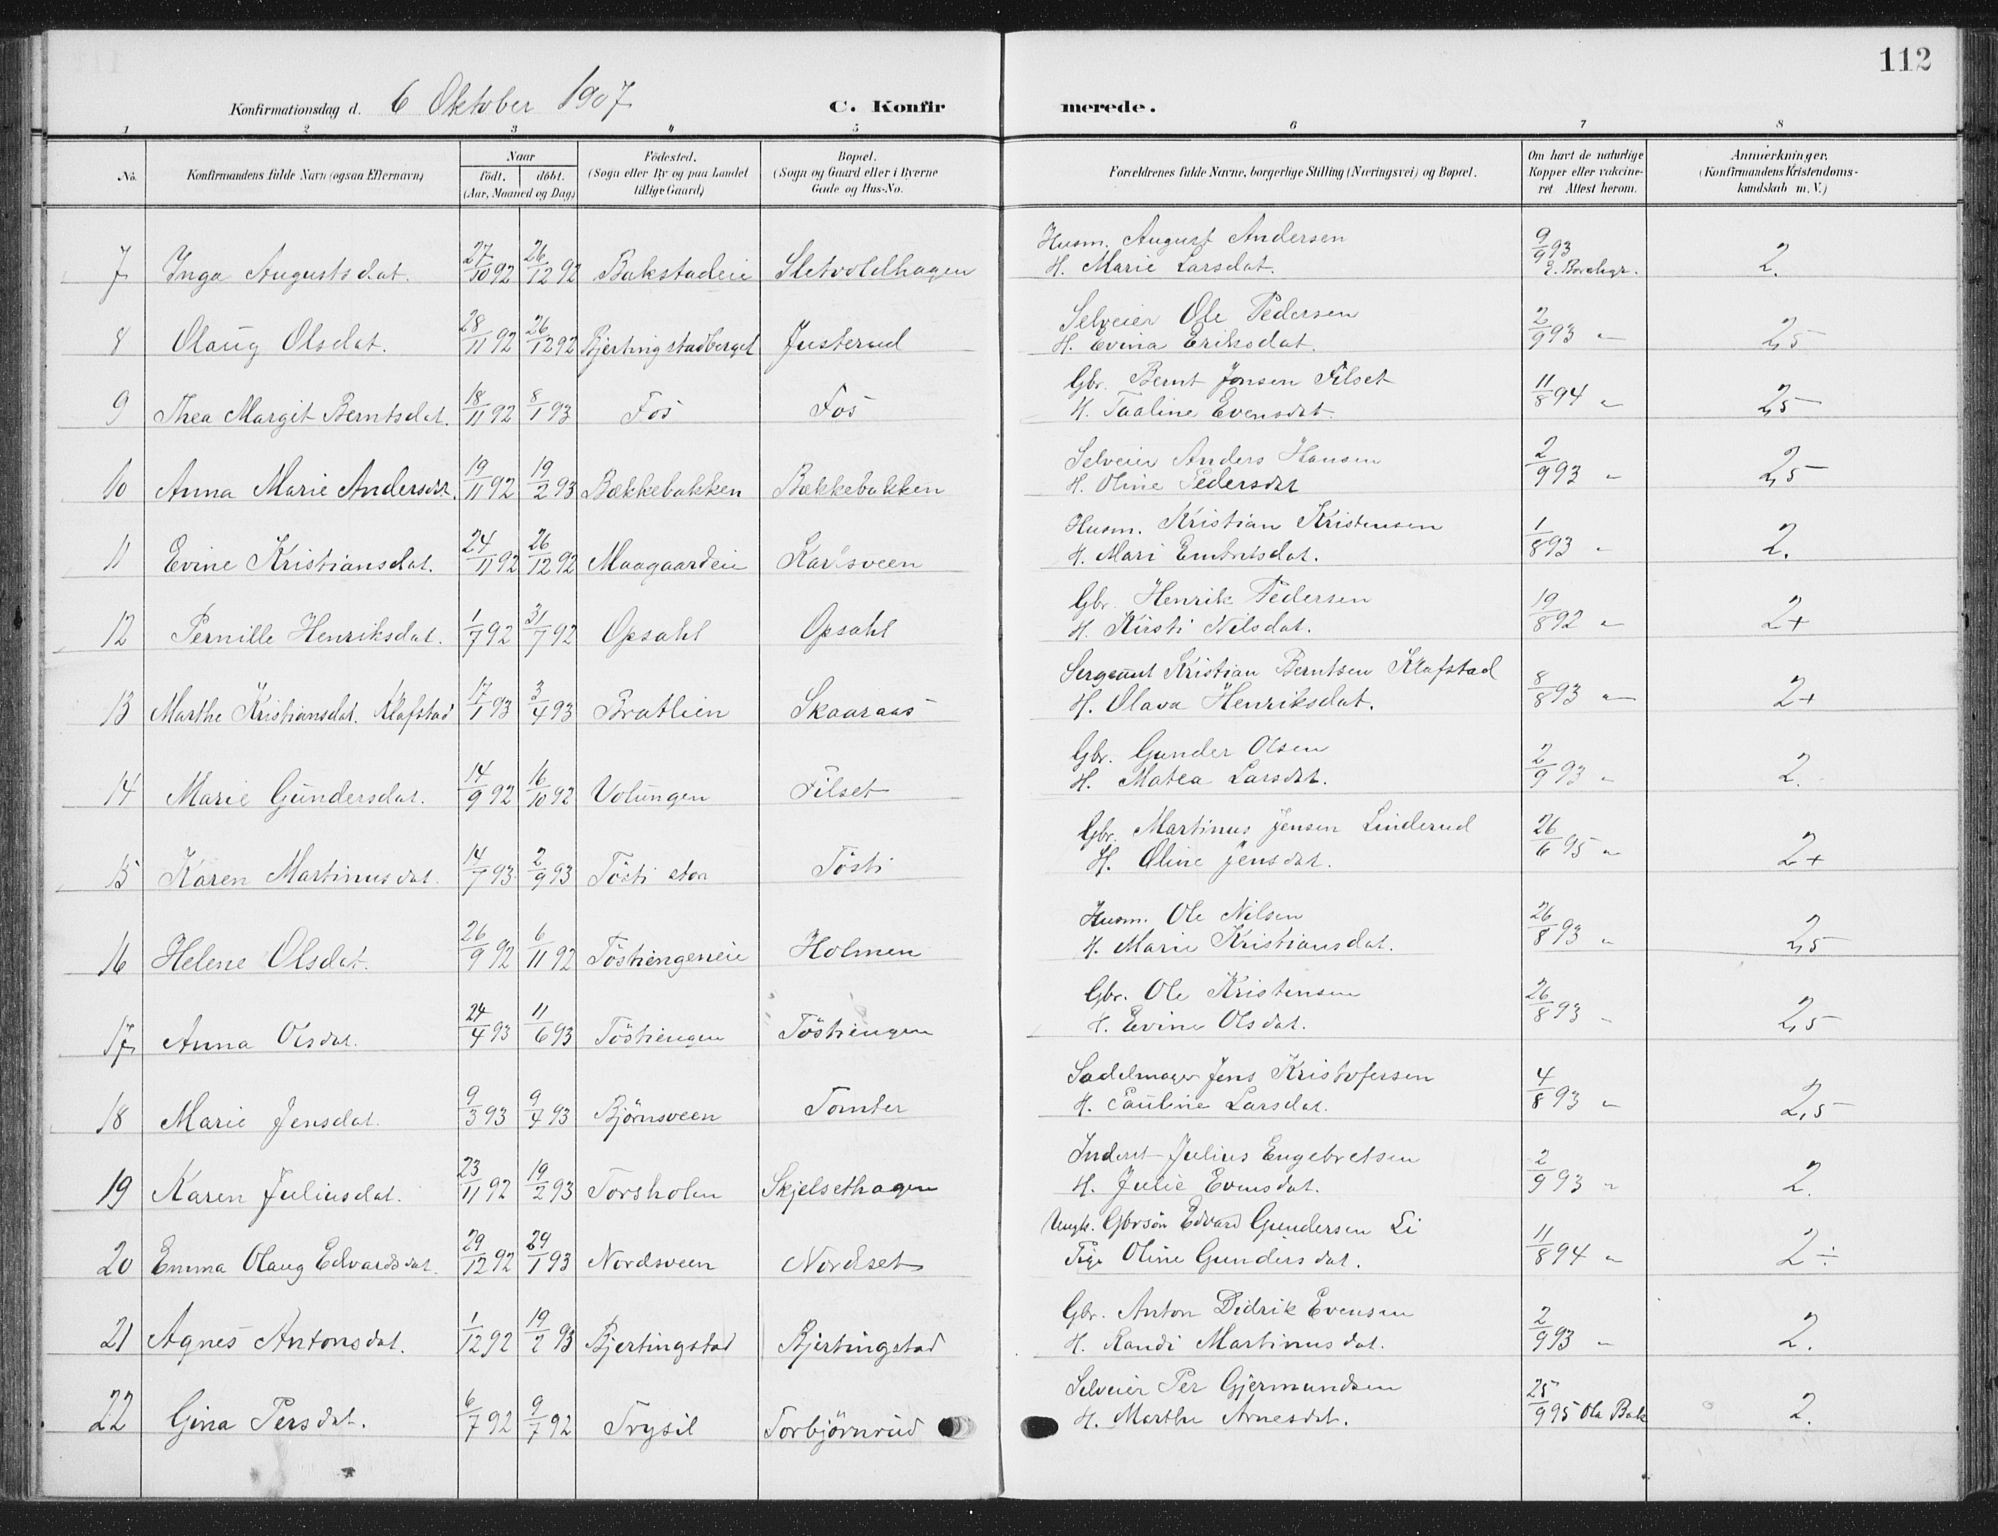 112
Konfirmationsdag d. 6 Oktober 1907 C. Konfirmerede.
1 2 3 4 5 6 7 8
No. Konfirmandens fulde Navn (ogsaa Efternavn) Naar Födt. döbt. (Aar, Maaned og Dag) Födested. (Sogn eller By og paa Landet tillige Gaard) Bopæl. (Sogn og Gaard eller i Byerne Gade og Hus-No. Forældrenes fulde Navne, borgerlige Stilling (Næringsvei) og Bopæl. Om havt de naturlige Kopper eller vakcineret. Attest herom. Anmærkninger. (Konfirmandens Kristendomskundskab m. V.)
7 Inga Augustsdat. 27/10 92 26/12 92 Bakstadeie Sletvoldhagen Husm. August Andersen 9/9 93
H. Marie Larsdat. 2.
8 Olaug Olsdat. 28/11 92 26/12 92 Bjertingstadberget Justerud Selveier Ole Pedersen 2/9 93 "
H. Evina Eriksdat. 2,5
9 Thea Margit Berntsdat. 18/11 92 8/1 93 Fos Fos Gbr. Bernt Jonsen Filset 11/8 94 "
H. Taaline Evensdat. 2,5
10 Anna Marie Andersdt. 19/11 92 19/2 93 Bækkebakken Bækkebakken Selveier Anders Hansen 2/9 93 "
H. Oline Pedersdat 2,5
11 Evine Kristiansdat. 24/11 92 26/12 92 Maagaardeie Karlsveen Husm. Kristian Kristensen 1/8 93 "
H. Mari Embretsdat. 2.
12 Pernille Henriksdat. 1/7 92 31/7 92 Opsahl Opsahl Gbr. Henrik Pedersen 19/8 92 "
H. Kirsti Nilsdat. 2+
13 Marthe Kristiansdat. Klafstad 17/1 93 3/4 93 Bratlien Skaaraas Sergeant Kristian Berntsen Klafstad 8/8 93 "
H. Olava Henriksdat. 2+
14 Marie Gundersdat. 14/9 92 16/10 92 Volungen Filset Gbr. Gunder Olsen 2/9 93 "
H. Matea Larsdat. 2.
15 Karen Martinusdat. 14/7 93 2/9 93 Tösti stor Tösti Gbr. Martinus Jensen Linderud 26/6 95 "
H. Oline Jensdat. 2+
16 Helene Olsdat. 26/9 92 6/11 92 Töstiengeneie Holmen Husm. Ole Nilsen 26/8 93 "
H. Marie Kristiansdat. 2,5
17 Anna Olsdat. 24/4 93 11/6 93 Töstiengen Töstiengen Gbr. Ole Kristensen 26/8 93 "
H. Evine Olsdat. 2,5
18 Marie Jensdat. 9/3 93 9/4 93 Björnsveen Tomter Sadelmager Jens Kristofersen 4/8 93 "
H. Pauline Larsdat. 2,5
19 Karen Juliusdat. 23/11 92 19/2 93 Torsholen Skjelsethagen Inderst Julius Engebretsen 2/9 93 "
H. Julie Evensdat. 2.
20 Emma Olaug Edvardsdat. 29/12 92 29/1 93 Nordsveen Nordset Ungk. Gbrsön Edvard Gundersen Li 11/8 94 "
Pige Oline Gundersdat. 2÷
21 Agnes Antonsdat. 1/12 92 19/2 93 Bjertingstad Bjertingstad Gbr. Anton Didrik Evensen 2/9 93 "
H. Randi Martinusdat. 2.
22 Gina Persdat. 6/7 92 9/7 92 Trysil Torbjörnrud Selveier Per Gjermundsen 25/9 95 Ola Bak
H. Marthe Arnesdat. 2.